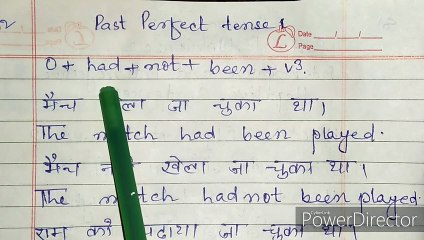 Past Perfect tense
Date
Page
O + had + not + been + v3.
मैच जा चुका था।
The had been played.
मैच खेला जा चुका था।
The had not been played.
राम को जा चुका था।
Made With
PowerDirector